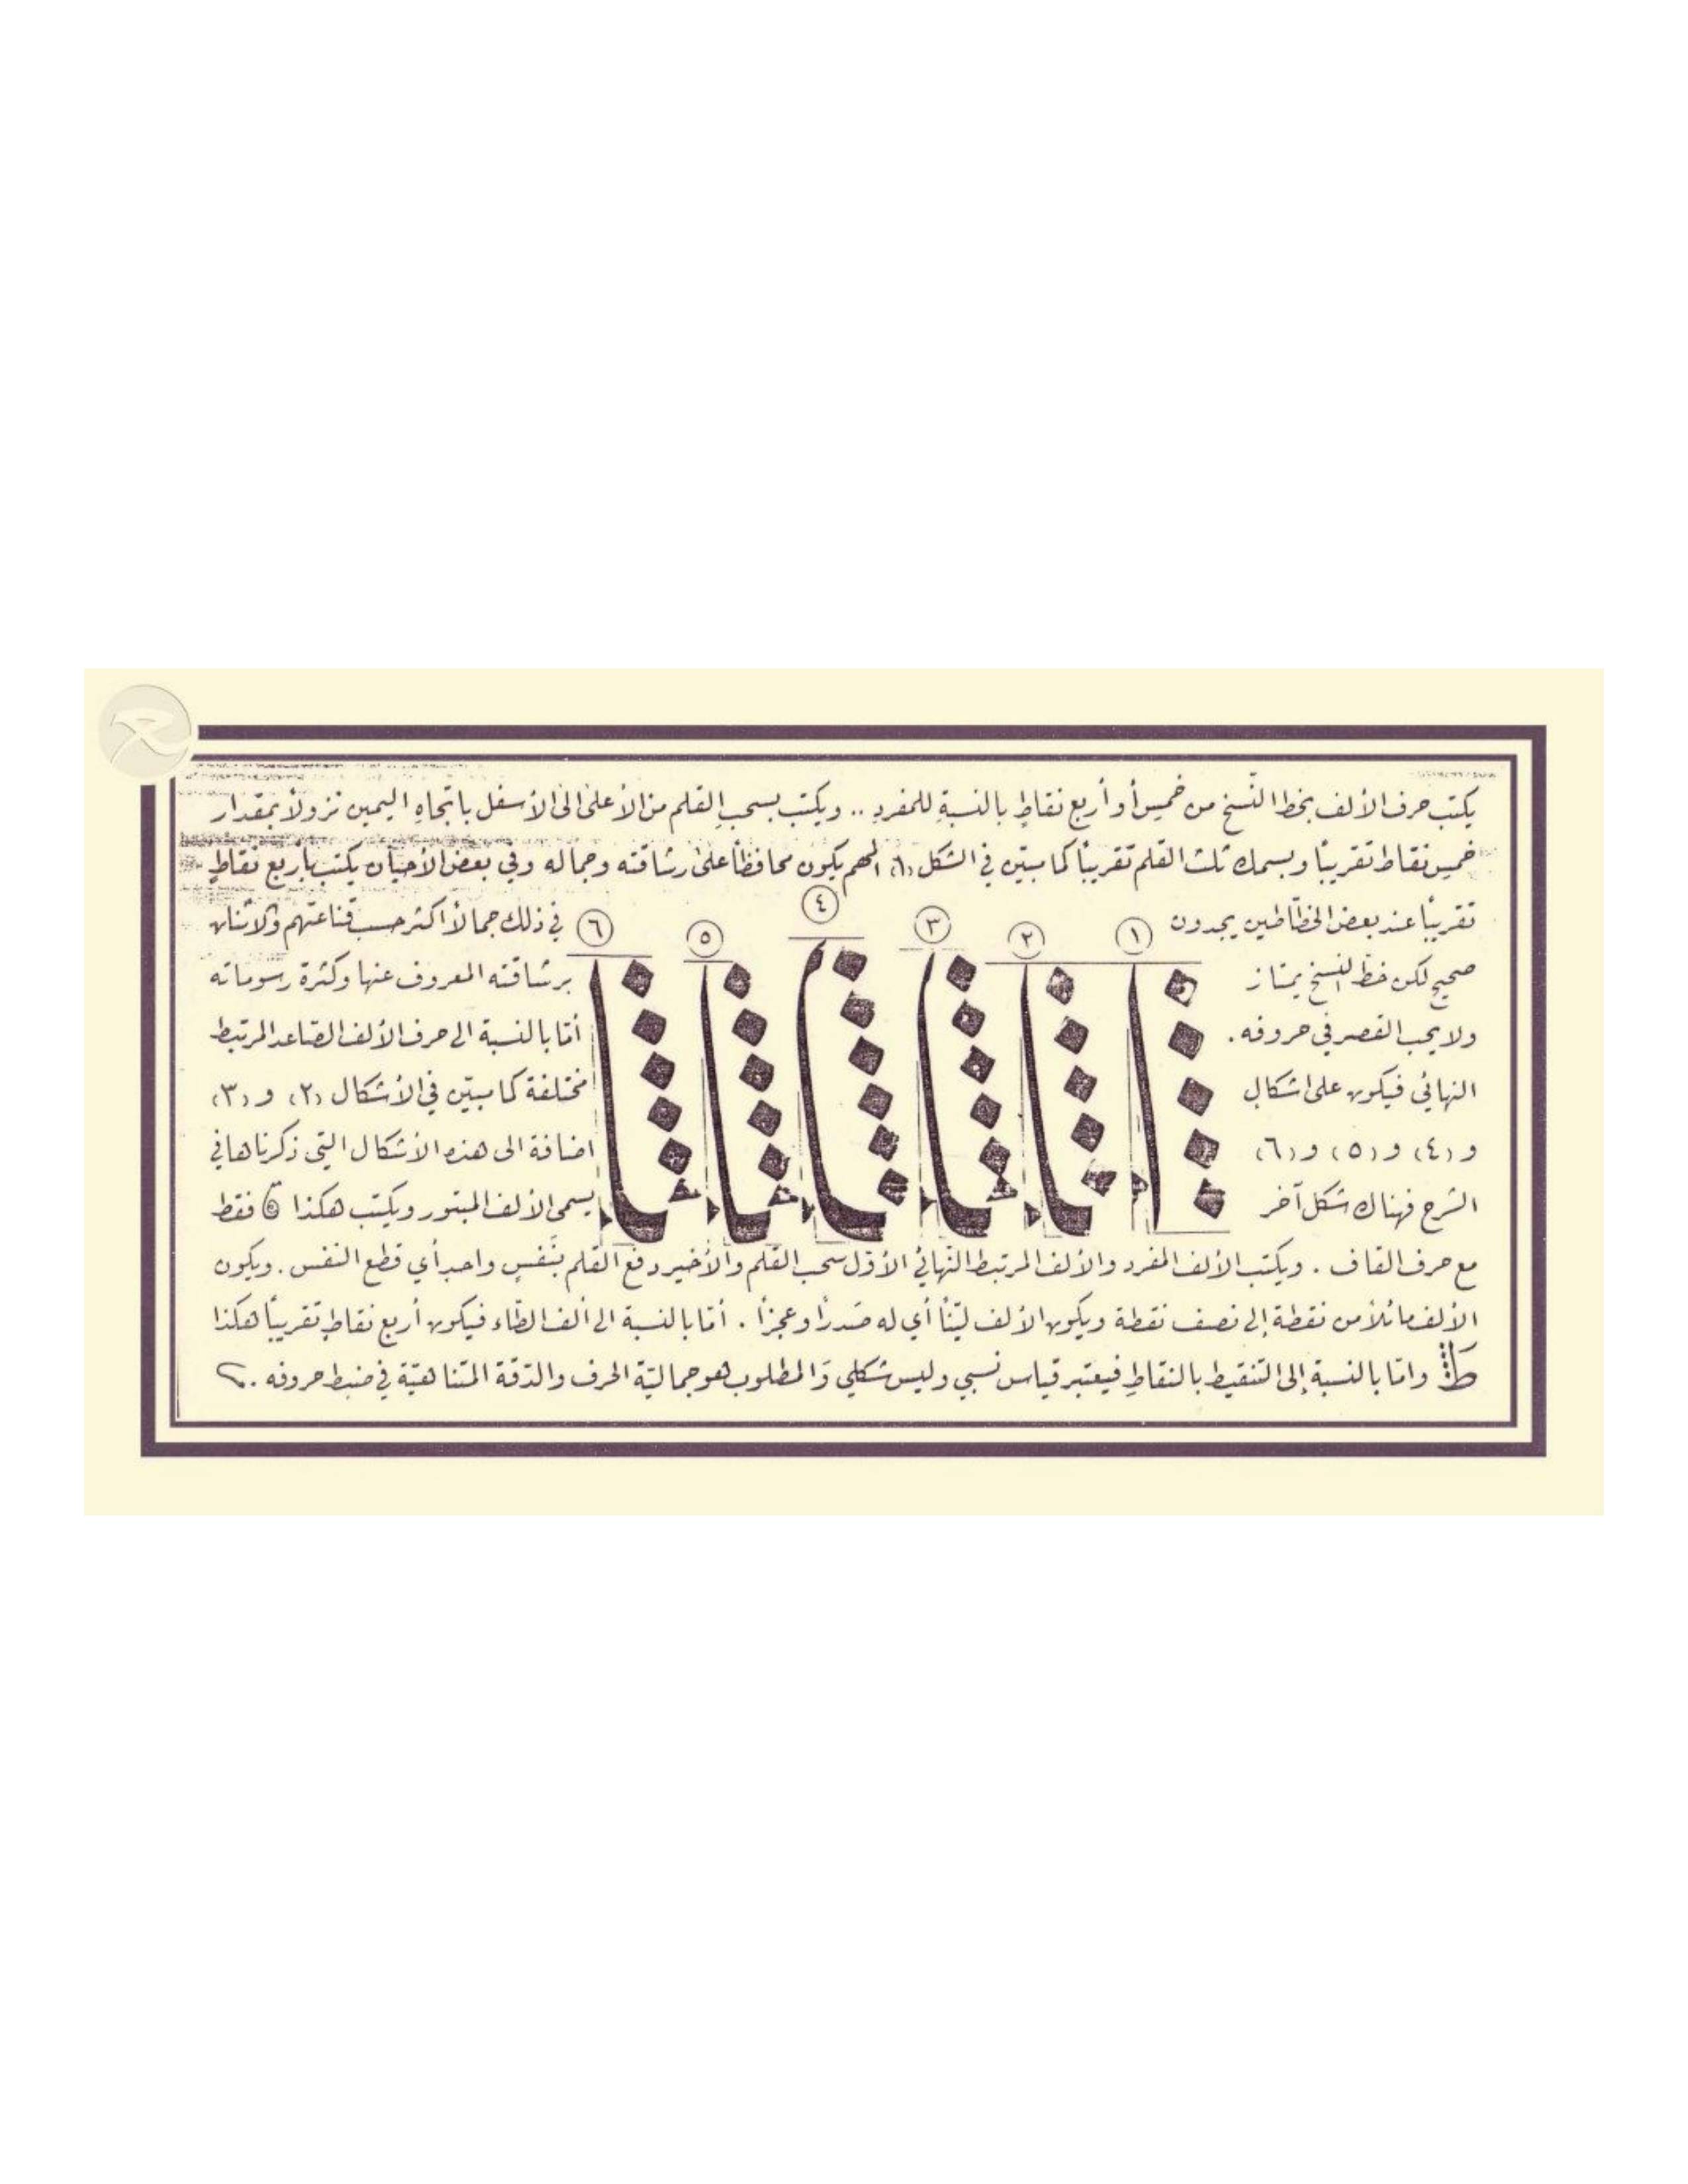 يكتب حرف الألف بخط النّسخ من خمس أو أربع نقاطٍ بالنسبةِ للمفردِ .. ويكتب بسحبِ القلم من الأعلى الى الأسفل باتجاهِ اليمين نزولاً بمقدار
خمس نقاط تقريباً وبسمك ثلث القلم تقريباً كما مبيّن في الشكل (١) المهم يكون محافظاً على رشاقته وجماله وفي بعض الأحيان يكتب بأربع نقاطٍ
تقريباً عند بعض الخطّاطين يجدون في ذلك جمالاً أكثر حسب قناعتهم والاثنان
صحيح لكن خط النسخ يمتاز برشاقته المعروف عنها وكثرة رسوماته
ولا يحب القصر في حروفه . أمّا بالنسبة الى حرف الألف الصّاعد المرتبط
النهائي فيكون على اشكال مختلفة كما مبيّن في الأشكال (٢) و (٣)
و (٤) و (٥) و (٦) اضافة الى هذه الأشكال التي ذكرناها في
الشرح فهناك شكل آخر يسمى الألف المبتور ويكتب هكذا فقط
١ ٢ ٣ ٤ ٥ ٦
مع حرف القاف . ويكتب الألف المفرد والألف المرتبط النّهائي الأوّل سحب القلم والأخير دفع القلم بنَفَسٍ واحدٍ أي قطع النفس . ويكون
الألف مائلاً من نقطة إلى نصف نقطة ويكون الألف ليّناً أي له صَدراً وعجزاً . أمّا بالنسبة الى ألف الطّاء فيكون أربع نقاطٍ تقريباً هكذا
ط وامّا بالنسبة إلى التّنقيط بالنقاطِ فيعتبر قياس نسبي وليس شكلي وَالمطلوب هو جماليّة الحرف والدّقة المتناهيّة في ضبط حروفه .